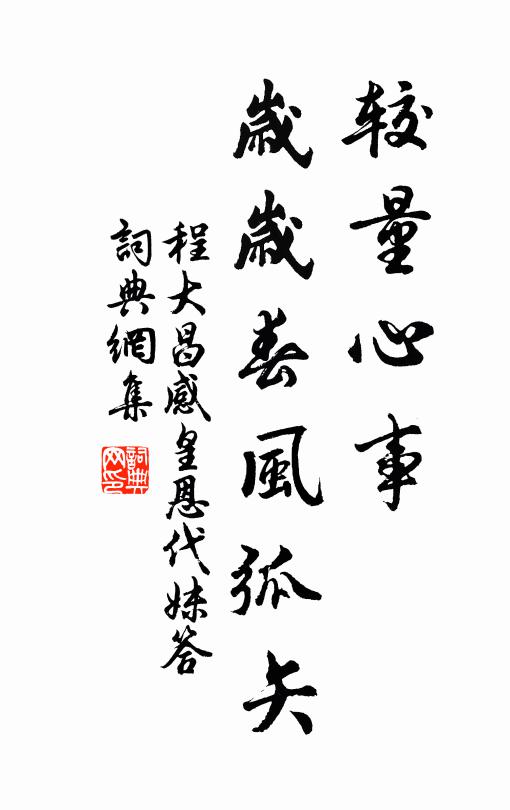 較量心事
歲歲春風弧矢
程大昌感皇恩代妹答
詞典網集
詞典网印